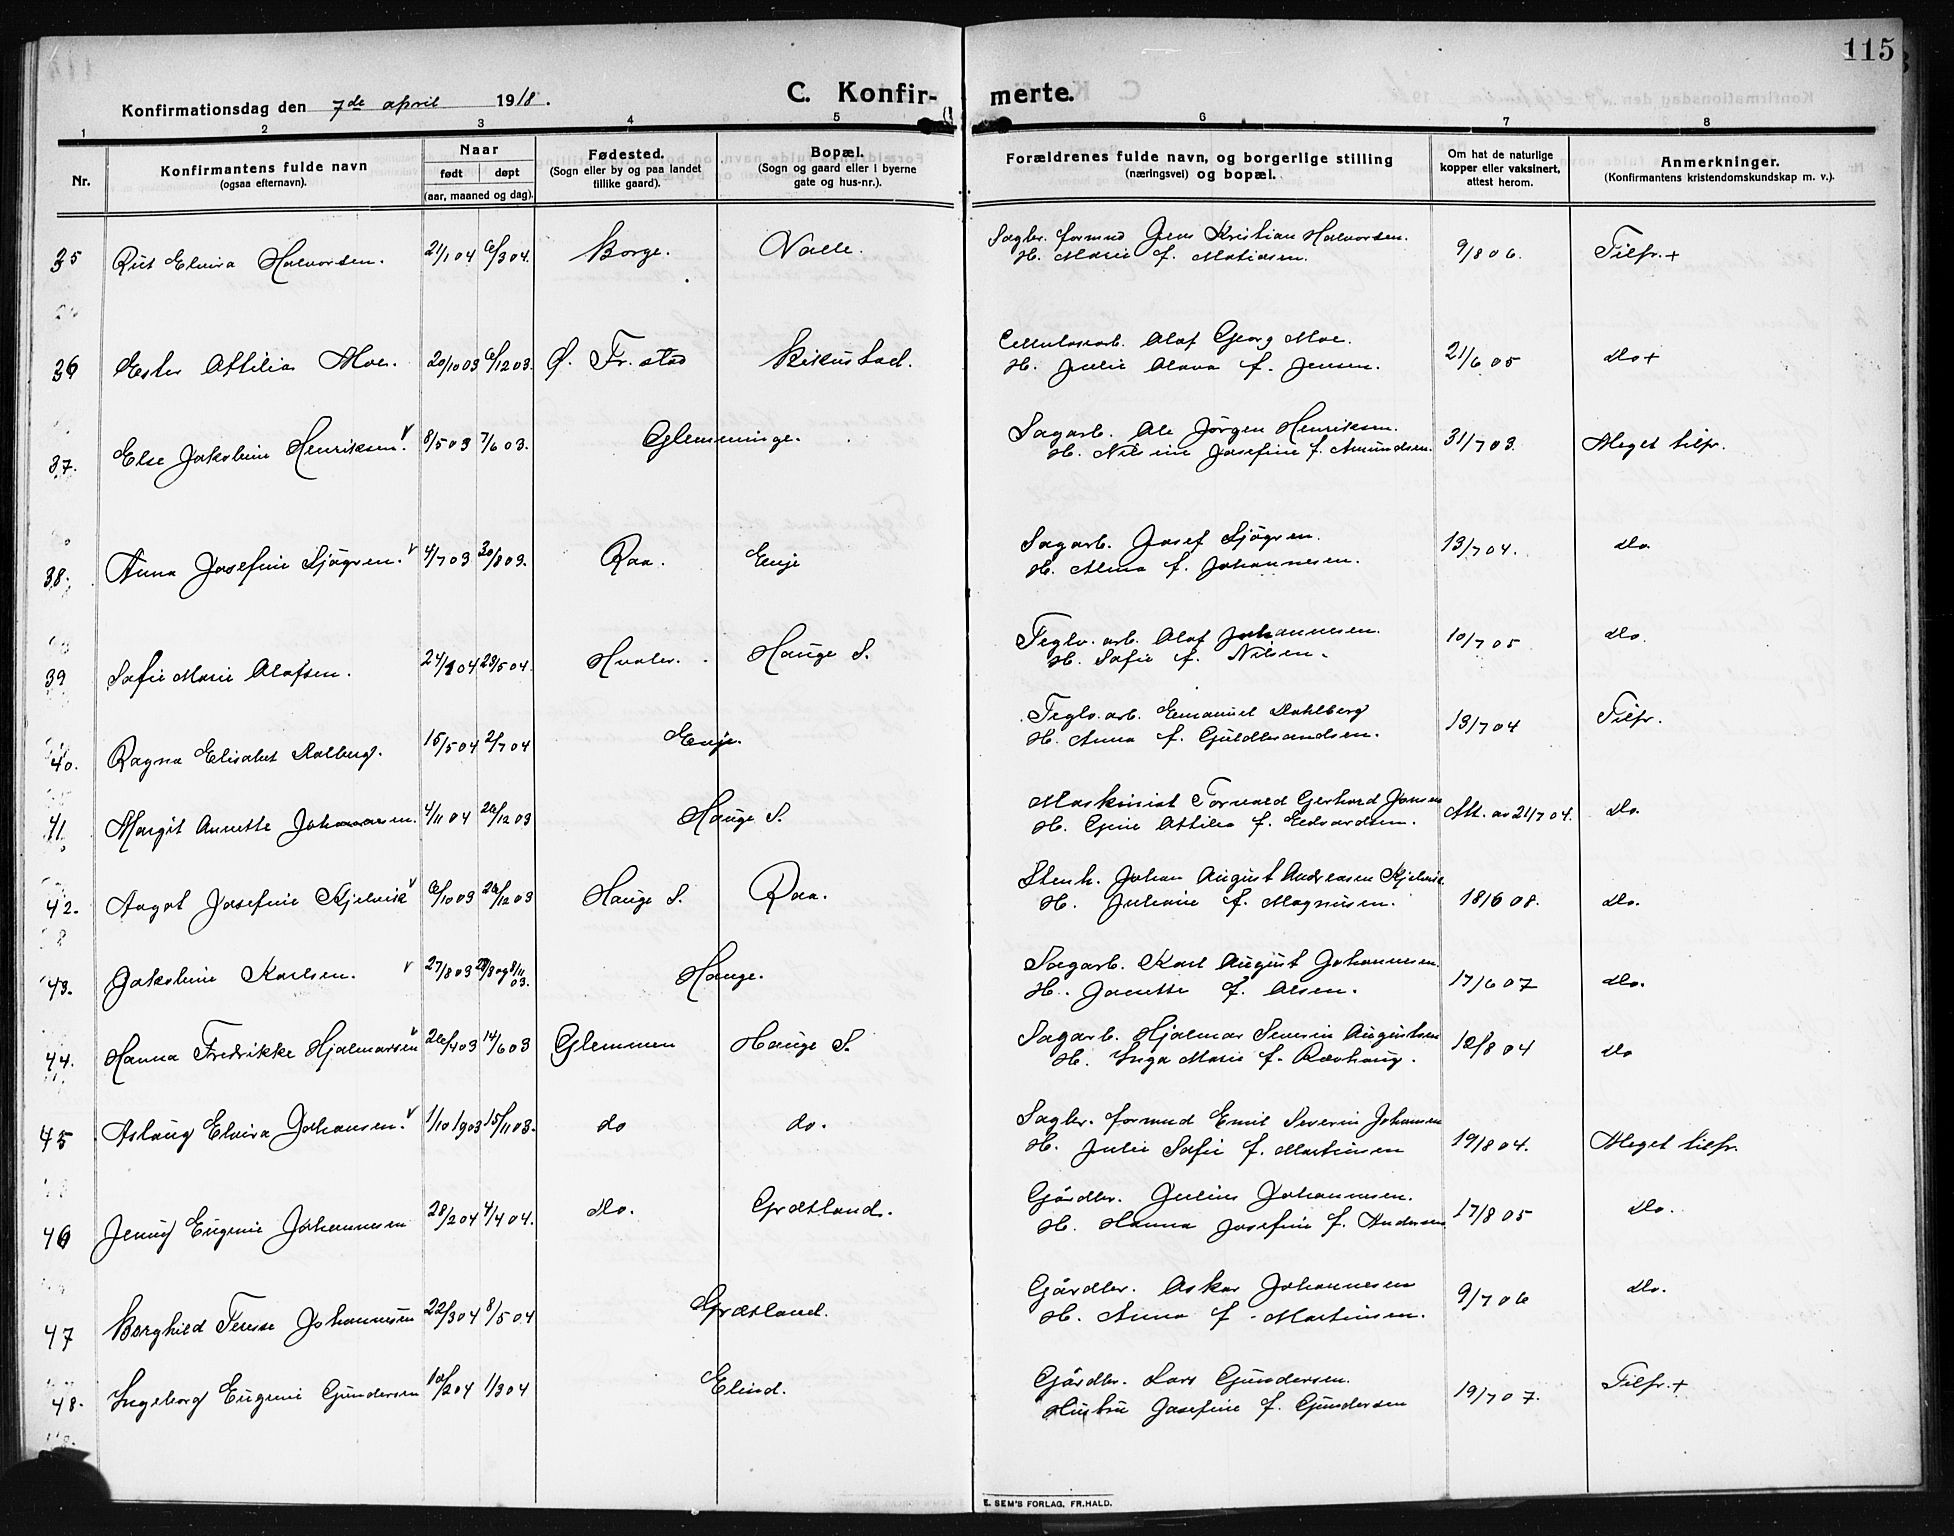 115
Konfirmationsdag den 7de april 1918.
C. Konfir- merte.
1 2 3 4 5 6 7 8
Nr.
Konfirmantens fulde navn
(ogsaa efternavn).
Naar
født døpt
(aar, maaned og dag).
Fødested.
(Sogn eller by og paa landet
tillike gaard).
Bopæl.
(Sogn og gaard eller i byerne
gate og hus-nr.).
Forældrenes fulde navn, og borgerlige stilling
(næringsvei) og bopæl.
Om hat de naturlige
kopper eller vaksinert,
attest herom.
Anmerkninger.
(Konfirmantens kristendomskundskap m. v.).
Sagbr. formnd Jens Kristian Halvorsen.
35 Rut Elvira Halvorsen. 21/1 04 6/3 04. Borge. Valle. 9/8 06. Tilfr. +
H. Marie f. Matiasen.
Cellulosearb. Olaf Georg Moe.
36 Ester Attilia Moe. 20/10 03 6/12 03. Ø. Fr. stad 21/6 05 do +
H. Julie Olava f. Jensen.
Sagarb. Ole Jørgen Henriksen.
37. Else Jakobine Henriksen. v 8/5 03 7/6 03. Glemminge. 31/7 03. Meget tilfr.
H. Nilsine Josefine f. Amundsen.
Sagarb. Josef Sjögren.
38. Anna Josefine Sjögren. v 4/7 03 30/8 03. Raa. Enje 13/7 04. do.
H. Alma f. Johannesen.
Teglv. arb. Olaf Johannesen.
39 Sofie Marie Olafsen. 24/ 04 23/5 04. Hvaler. Hauge S. 10/7 05 do.
H. Sofie f. Nilsen.
Teglv. arb. Emanuel Dahlberg
40. Ragna Elisabet Dalberg. 15/5 04 2/7 04 Enje. 13/7 04 Tilfr.
H. Anna f. Guldbrandsen.
Maskinist Torvald Gerhard Jansen
41. Margit Annette 4/11 04 26/12 03 Hauge S. Att. av 21/7 04. do.
H. Gine Attilia f. Edvardsen.
Stenh. Johan August Andreasen Kjelvik.
42. Aagot Josefine Kjelvik v 6/10 03 26/12 03 Hauge S. Raa. 18/6 08. do.
H. Juliane f. Magnusen.
Sagarb. Karl August Johannesen.
43. Jakobine Karlsen. v 27/8 03 og 8/11 03. Hauge. 17/6 07 do.
H. Janette f. Olsen.
Sagarb. Hjalmar Severin Augustsen
44. Hanna Fredrikke Hjalmarsen v 26/4 03 14/6 03 Glemmen Hauge S. 12/8 04 do
H. Inga Marie f. Rævhaug.
Sagbr. formnd Emil Severin Johansen
45 Aslaug Elvira Johansen. v 1/10 1903 15/11 03. do do. 19/8 04. Meget tilfr.
H. Julie Sofie f. Martinsen
Gårdbr. Julius Johannesen.
46 Jenny Eugenie Johannesen 28/2 04 4/4 04. do. Græsland. 17/8 05 do.
H. Hanna Josefine f. Andersen
Gårdbr. Oskar Johannesen
47 Borghild Terese Johannesen 22/3 04 8/5 04 Græsland. 9/7 06 do.
H. Anna f. Martinsen.
Gårdbr. Lars Gundersen.
48. Ingeborg Eugenie Gundersen 10/2 04 1/3 04 Elind. 19/7 07. Tilfr. +
Hustru Josefine f. Gundersen
E. SEM'S FORLAG, FR.HALD.